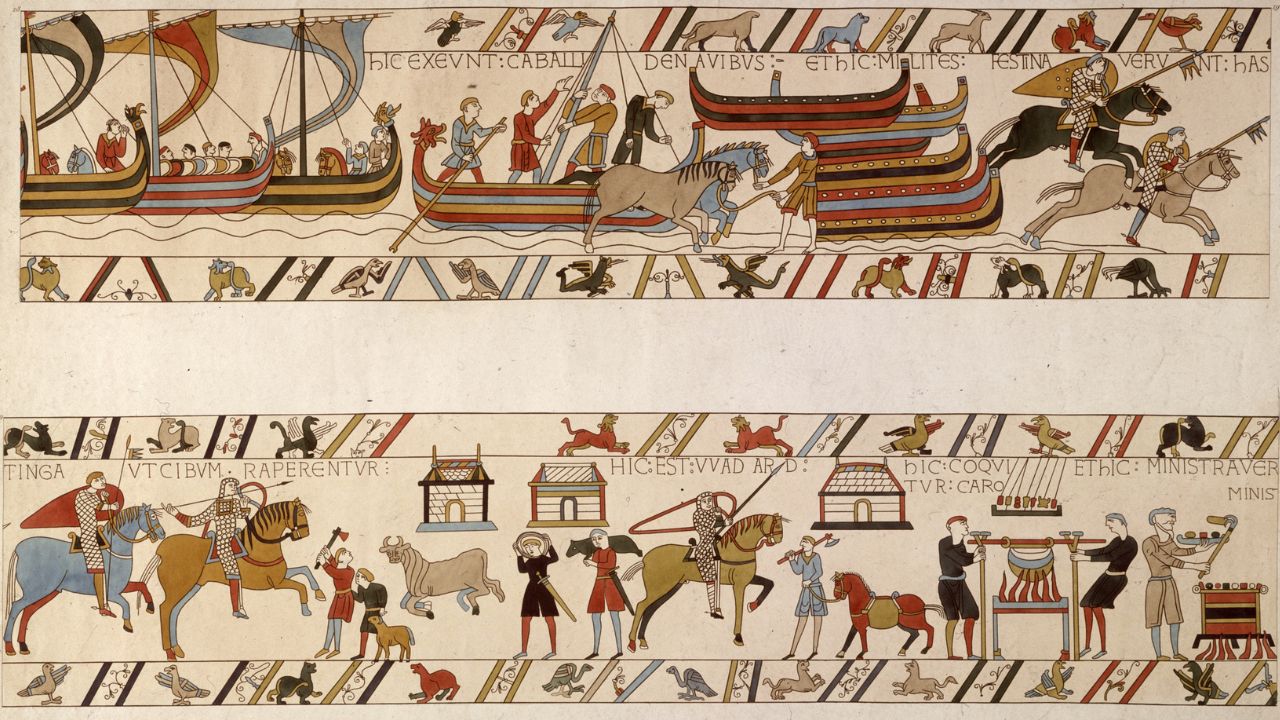 HIC EXEVNT: CABALLI DENAVIBUS:- ET hIC: MILITES: FESTINA VERV NT: hAS
TINGA VTCIBVM. RAPERENTVR:
HIC: EST: VVAD ARD:
hIC: COQVI ET hIC: MINISTRAVER
TVR: CARO MINIS